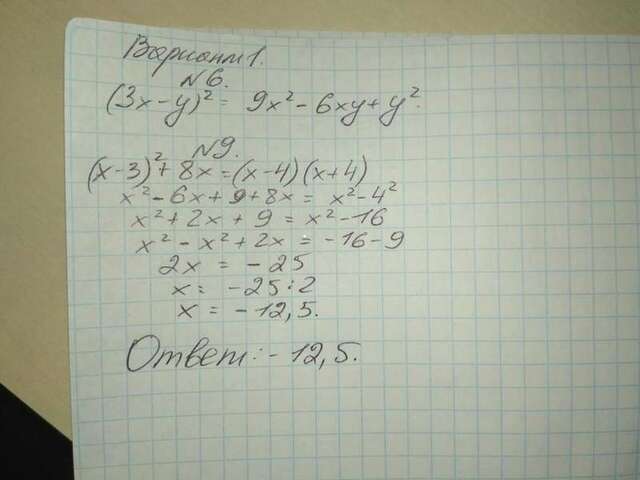 Вариант 1.
N6.
(3x-y)² = 9x² - 6xy + y².
N9.
(x-3)² + 8x = (x-4)(x+4)
x² - 6x + 9 + 8x = x² - 4²
x² + 2x + 9 = x² - 16
x² - x² + 2x = -16 - 9
2x = -25
x = -25:2
x = -12,5.
Ответ: -12,5.